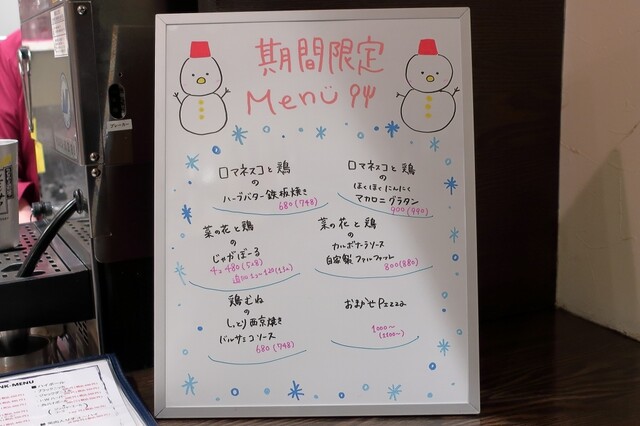 期間限定
Menü
ロマネスコと鶏
の
ハーブバター鉄板焼き
680(748)
ロマネスコと鶏
の
ほくほくにんにく
マカロニグラタン
900(990)
菜の花と鶏
の
じゃがぼーる
4コ 480(528)
菜の花と鶏
の
カルボナーラソース
自家製ファルファッレ
800(880)
鶏むね
の
しっとり西京焼き
バルサミコソース
680(748)
おまかせPizza
1000〜
(1100〜)
NK-MENU